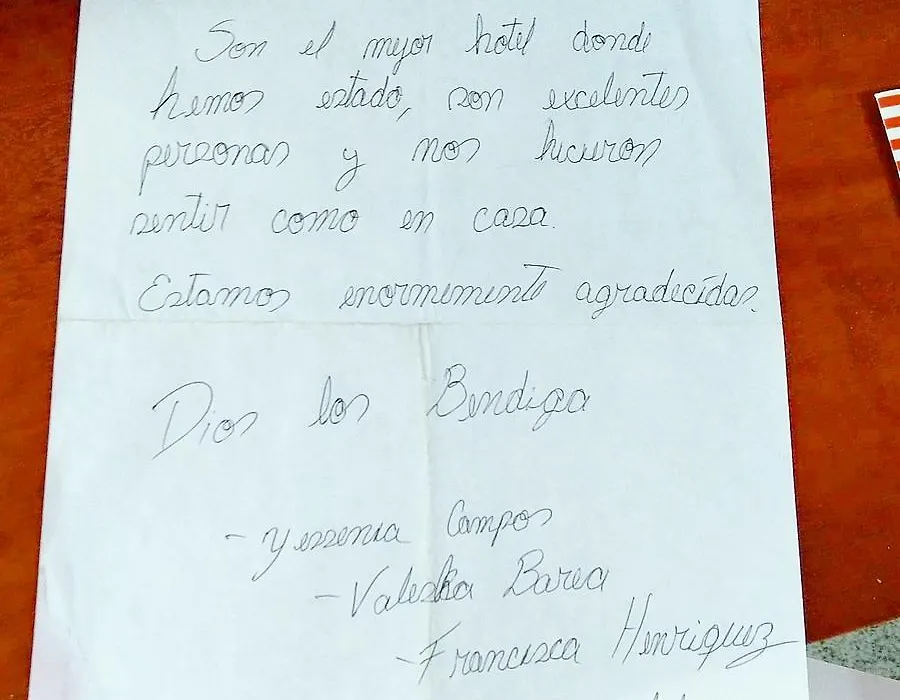 Son el mejor hotel donde
hemos estado, son excelentes
personas y nos hicieron
sentir como en casa.
Estamos enormemente agradecidas.
Dios los Bendiga
- Yessenia Campos
- Valeska Barea
- Francisca Henriquez